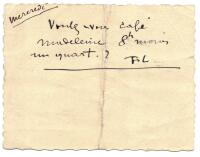 mercredi
Voulez-vous café
Madeleine 8h moins
un quart ?